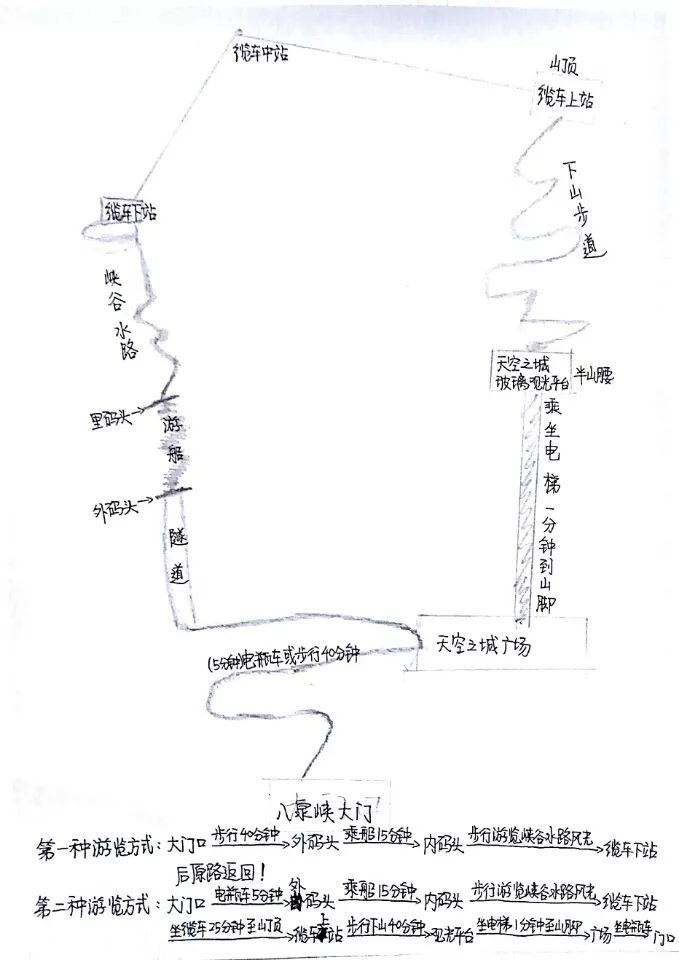 缆车中站
山顶
缆车上站
缆车下站
下山步道
峡谷水路
天空之城
玻璃观光平台
半山腰
里码头
游船
乘坐电梯一分钟到山脚
外码头
隧道
天空之城广场
15分钟电瓶车或步行40分钟
八泉峡大门
第一种游览方式:大门口 步行40分钟 外码头 乘船15分钟 内码头 步行游览峡谷水路风光 缆车下站
后原路返回!
第二种游览方式:大门口 电瓶车5分钟 外码头 乘船15分钟 内码头 步行游览峡谷水路风光 缆车下站
坐缆车25分钟至山顶 缆车上站 步行下山40分钟 观光平台 坐电梯1分钟至山脚 广场 坐电瓶车 门口